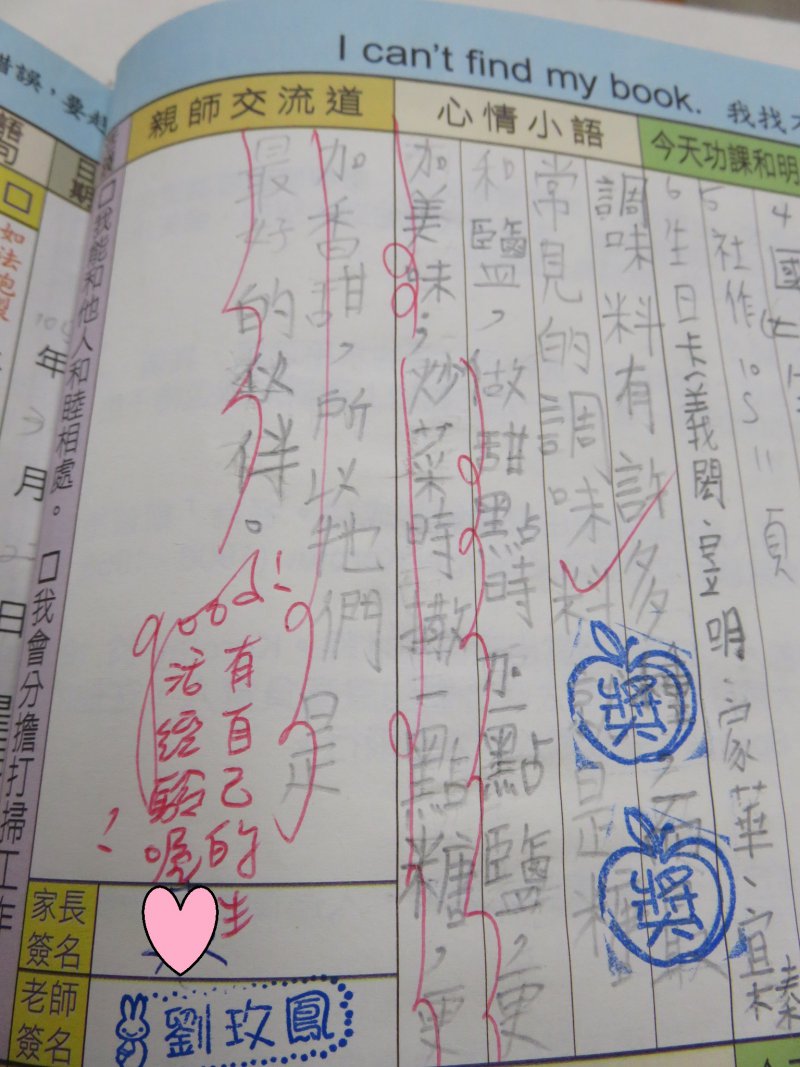 I can't find my book. 我找不
親師交流道
心情小語
今天功課和明
4國
5社作10、11頁
6生日卡
調味料有許多種，而最
常見的調味料就是糖
和鹽，做甜點時加一點鹽，更
加美味；炒菜時撒一點糖，更
加香甜，所以牠們是
最好的伙伴。
good!
有自己的生
活經驗喔!
獎
獎
□我能和他人和睦相處。□我會分擔打掃工作
家長
簽名
老師
簽名
劉玫鳳
錯誤，要
語
句
日
期
如法炮製
109
年
3
月
日